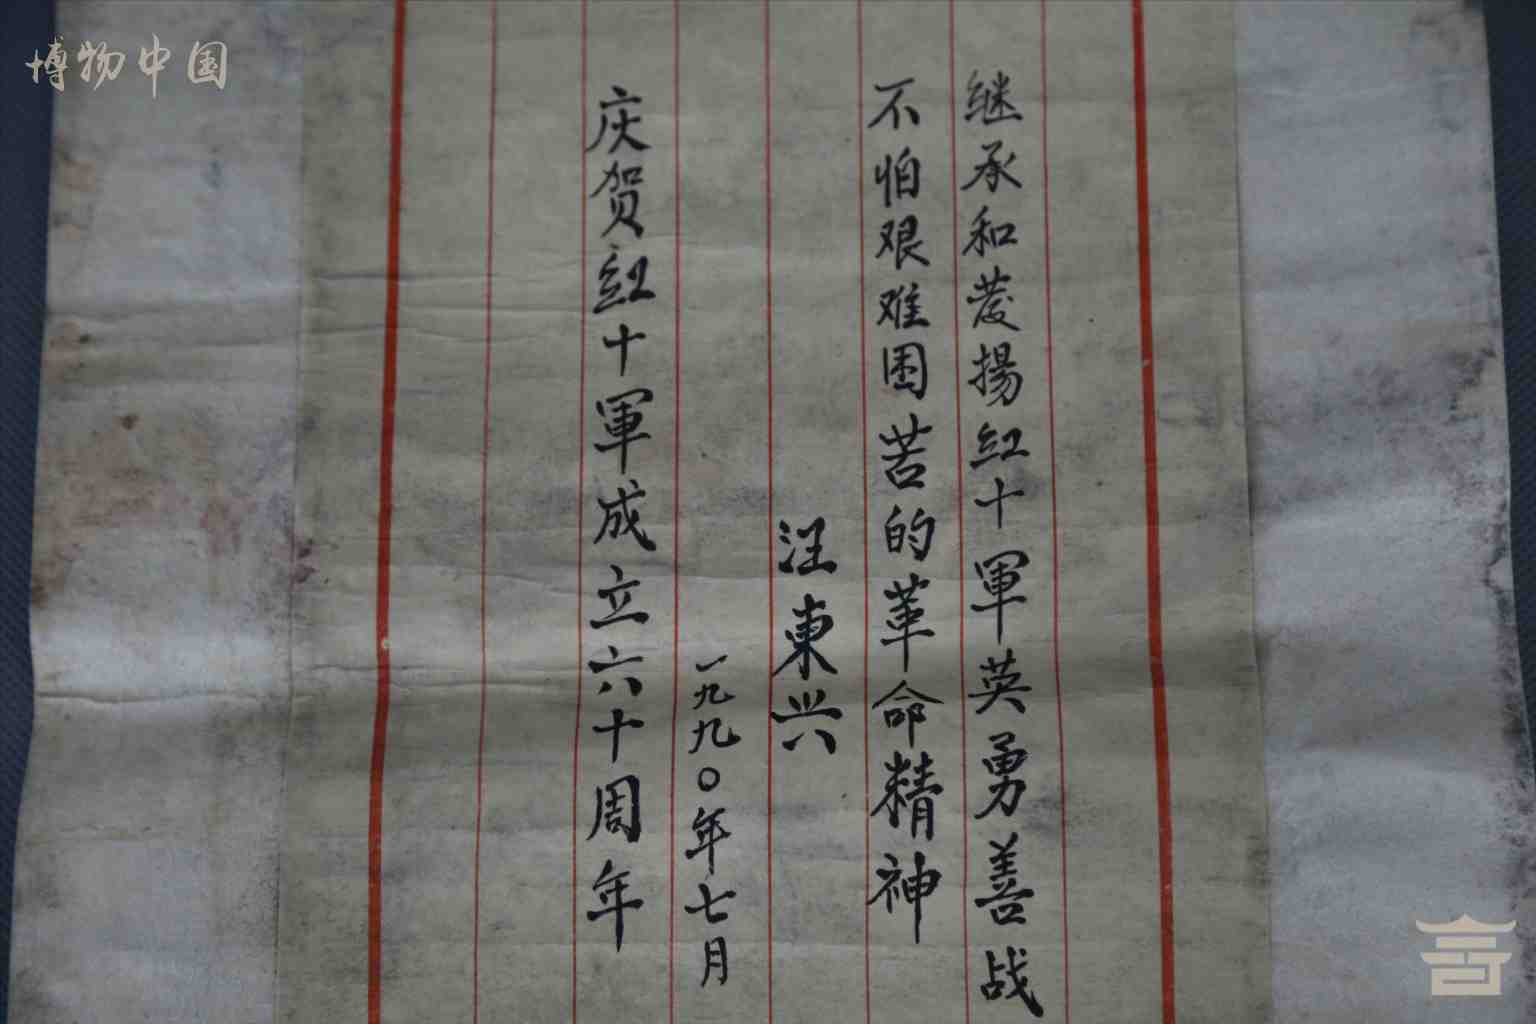 博物中国
继承和发揚红十軍英勇善战
不怕艰难困苦的革命精神
汪東兴
一九九〇年七月
庆贺紅十軍成立六十周年